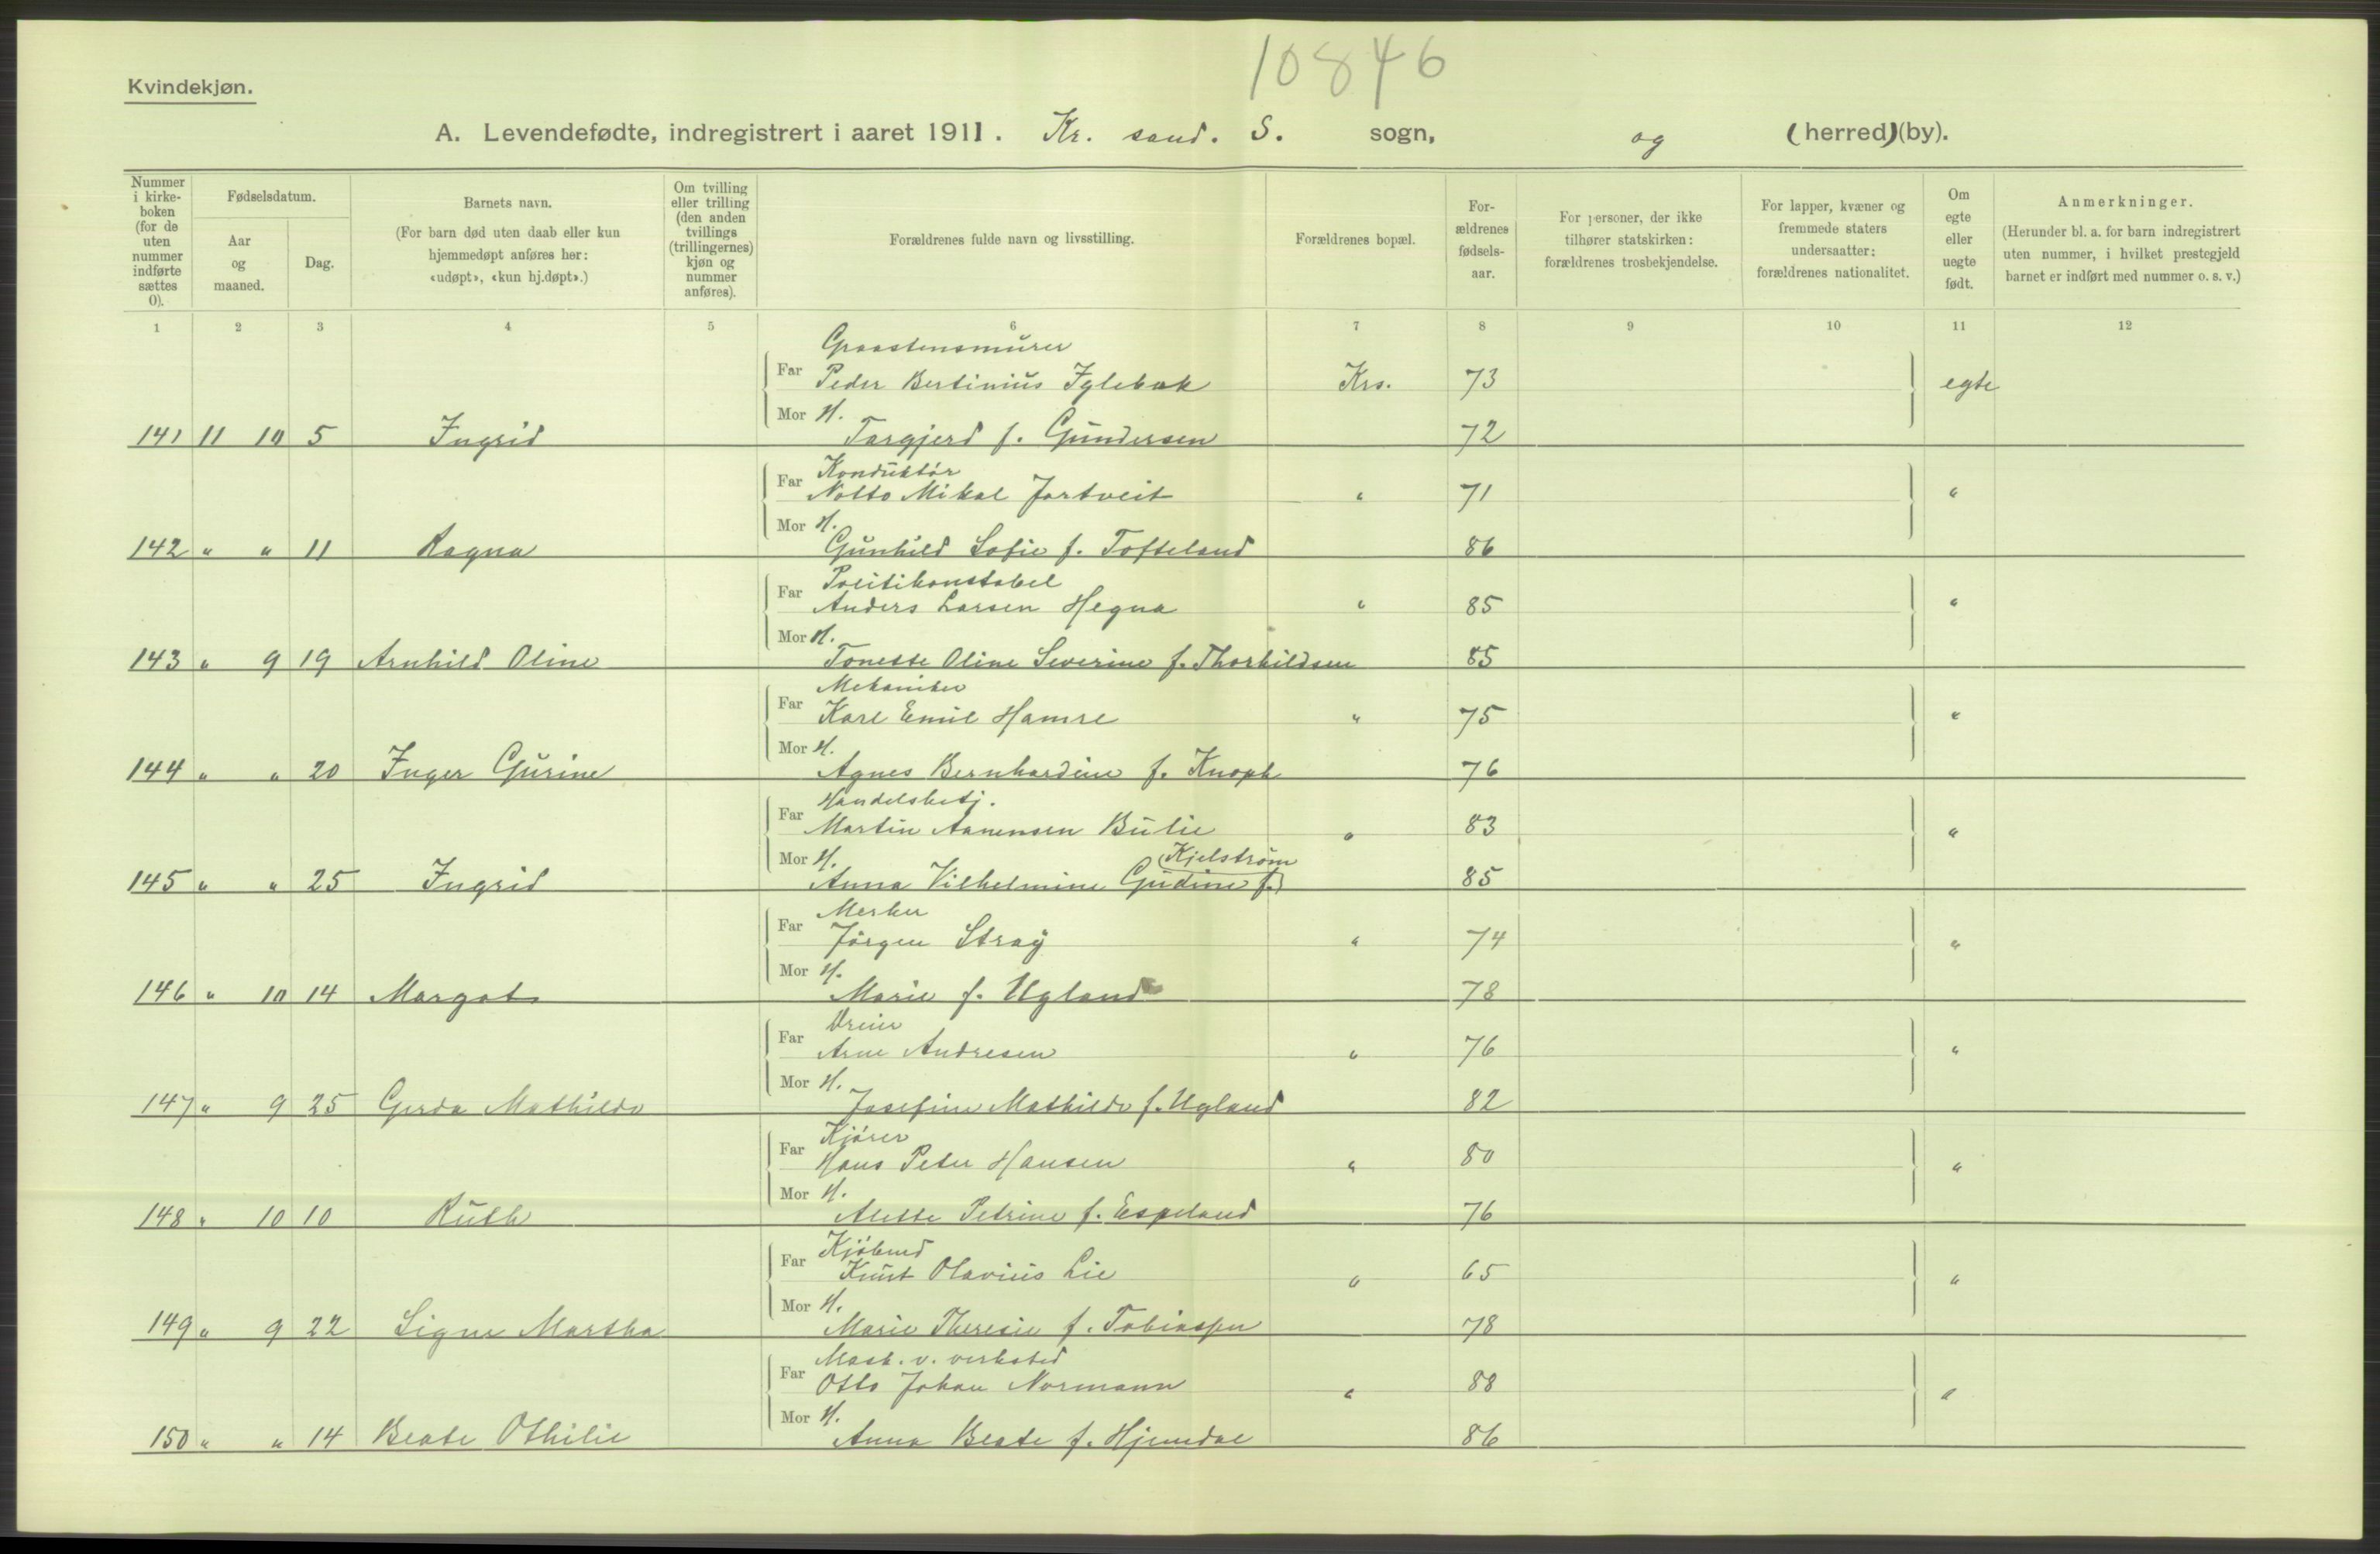 10846
Kvindekjøn.
A. Levendefødte, indregistrert i aaret 1911. Kr. sand. S. sogn, og (herred)(by).
Nummer i kirkeboken (for de uten nummer indførte sættes 0).
Fødselsdatum.
Aar og maaned.
Dag.
Barnets navn.
(For barn død uten daab eller kun hjemmedøpt anføres her: «udøpt», «kun hj.døpt».)
Om tvilling eller trilling (den anden tvillings (trillingernes) kjøn og nummer anføres).
Forældrenes fulde navn og livsstilling.
Forældrenes bopæl.
Forældrenes fødselsaar.
For personer, der ikke tilhører statskirken: forældrenes trosbekjendelse.
For lapper, kvæner og fremmede staters undersaatter: forældrenes nationalitet.
Om egte eller uegte født.
Anmerkninger.
(Herunder bl. a. for barn indregistrert uten nummer, i hvilket prestegjeld barnet er indført med nummer o. s. v.)
1 2 3 4 5 6 7 8 9 10 11 12
Graastensmurer
Far Peder Bertinius Iglebæk Krs. 73 egte
Mor H.
141 11 10 5 Ingrid Targjerd f. Gundersen 72
Konduktør
Far Notto Mikal Jortveit " 71 "
Mor H.
142 " " 11 Ragna Gunhild Sofie f. Tofteland 86
Politikonstabel
Far Anders Larsen Hegna " 85 "
Mor H.
143 " 9 19 Arnhild Oline Tonette Oline Severine f. Thorkildsen 85
Mekaniker
Far Karl Emil Hamre " 75 "
Mor H.
144 " " 20 Inger Gurine Agnes Bernhardine f. Knoph 76
Handelsbetj.
Far Martin Aanensen Bulie " 83 "
Mor H. (Kjelstrøm
145 " " 25 Ingrid Anna Vilhelmine Gudine f.) 85
Merker
Far Jørgen Stray " 74 "
Mor H.
146 " 10 14 Margot Marie f. Ugland 78
Dreier
Far Arne Andresen " 76 "
Mor H.
147 " 9 25 Gerda Mathilde Josefine Mathilde f. Ugland 82
Kjører
Far Hans Peter Hansen " 80 "
Mor H.
148 " 10 10 Ruth Alette Petrine f. Espeland 76
Kjøbmd
Far Knut Olavius Lie " 65 "
Mor H.
149 " 9 22 Signe Martha Marie Theresie f. Tobiassen 78
Mask. v. verksted
Far Otto Johan Normann " 88 "
Mor H.
150 " " 14 Beate Othilie Anna Beate f. Hjemdal 86